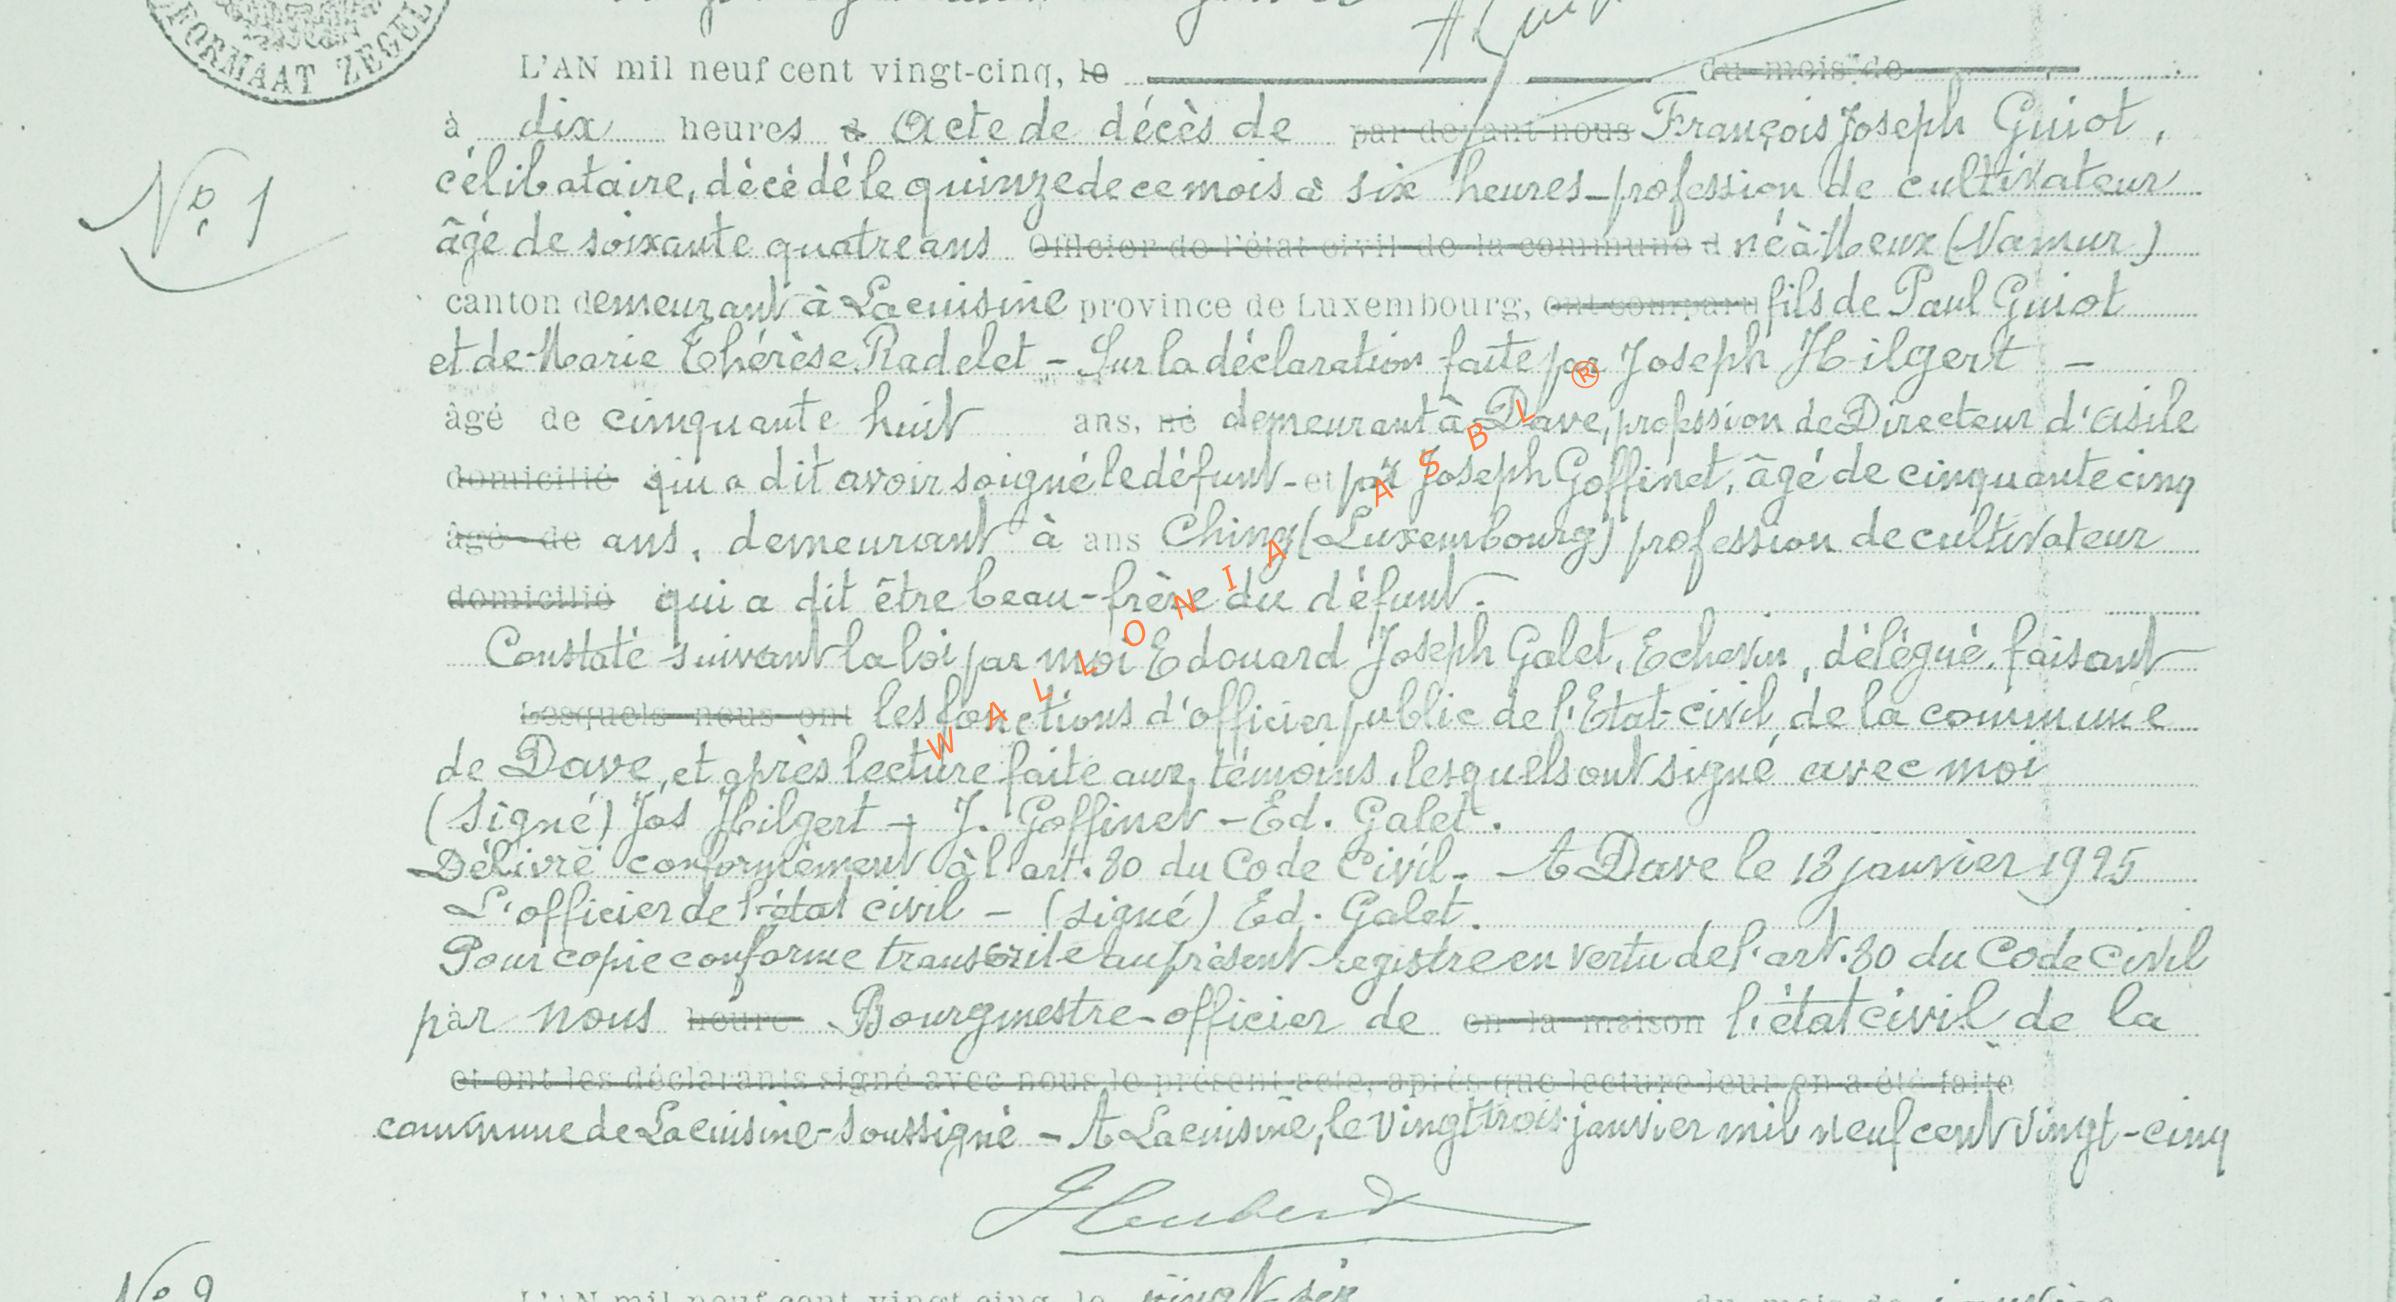 FORMAAT ZEGEL
L'AN mil neuf cent vingt-cinq, le du mois de
à dix heures & Acte de décès de par devant nous François Joseph Guiot,
célibataire, décédé le quinze de ce mois à six heures - profession de cultivateur
N° 1
âgé de soixante quatre ans Officier de l'état civil de la commune d né à Meux (Namur)
canton demeurant à Lacuisine province de Luxembourg, ont comparu fils de Paul Guiot
et de Marie Thérèse Radelet - Sur la déclaration faite par Joseph Hilgert -
âgé de cinquante huit ans, né demeurant à Dave, profession de Directeur d'asile
domicilié qui a dit avoir soigné le défunt - et par Joseph Goffinet, âgé de cinquante cinq
âgé de ans, demeurant à ans Chiny (Luxembourg) profession de cultivateur
domicilié qui a dit être beau-frère du défunt.
Constaté suivant la loi par moi Edouard Joseph Galet, Echevin, délégué faisant
Lesquels nous ont les fonctions d'officier public de l'Etat-civil de la commune
de Dave, et après lecture faite aux témoins, lesquels ont signé avec moi
(Signé) Jos Hilgert - J. Goffinet - Ed. Galet.
Délivré conformément à l'art. 80 du Code Civil. - A Dave le 18 janvier 1925
L'officier de l'état civil - (signé) Ed. Galet.
Pour copie conforme transcrite au présent registre en vertu de l'art. 80 du Code Civil
par nous heure Bourgmestre-officier de en la maison l'état civil de la
et ont les déclarants signé avec nous le présent acte, après que lecture leur en a été faite
commune de Lacuisine - soussigné - A Lacuisine, le vingt trois janvier mil neuf cent vingt-cinq
WALLONIA ASBL ®
L'AN mil neuf cent vingt-cinq, le vingt-six du mois de janvier